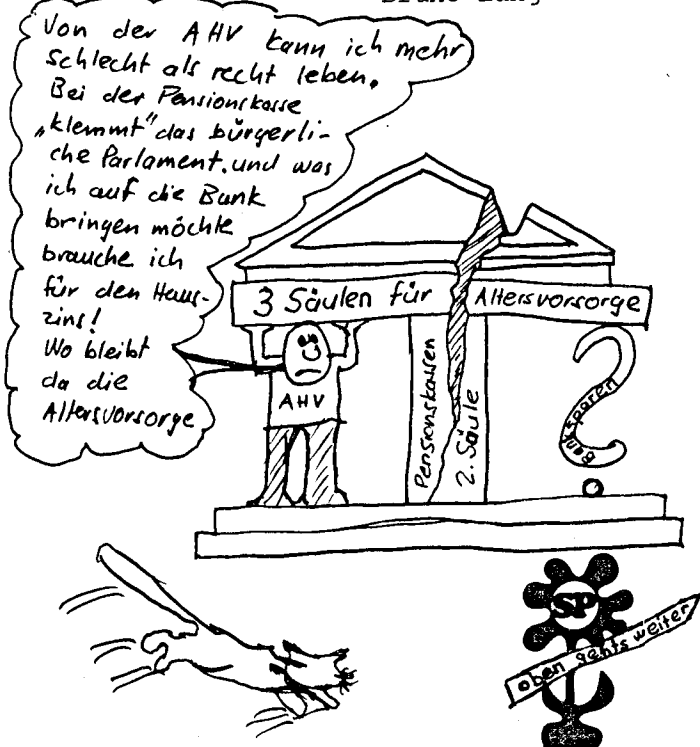 Von der AHV kann ich mehr
schlecht als recht leben.
Bei der Pensionskasse
„klemmt" das bürgerli-
che Parlament. und was
ich auf die Bank
bringen möchte
brauche ich
für den Haus-
zins!
Wo bleibt
da die
Altersvorsorge
3 Säulen für Altersvorsorge
AHV
Pensionskassen
2. Säule
Banksparen
SP
oben gehts weiter